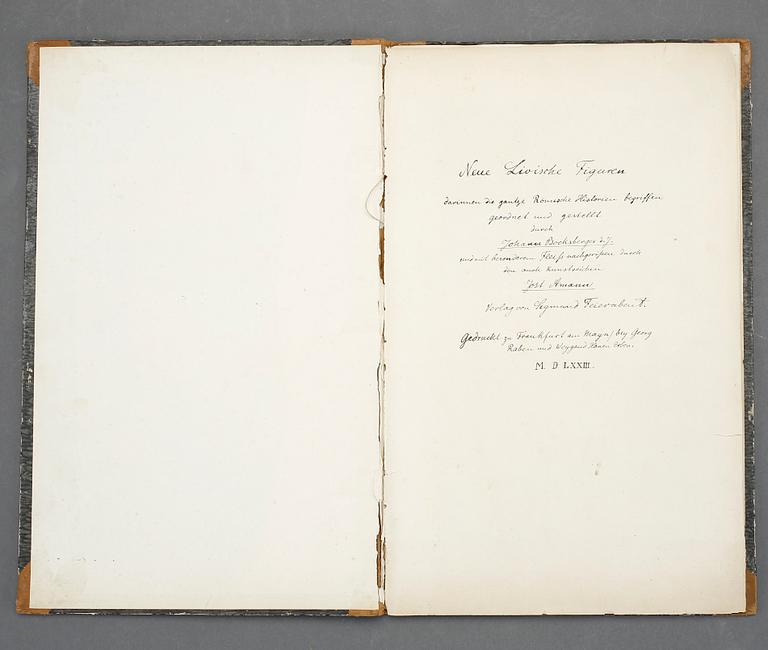 Neue Livische Figuren
darinnen die gantze Römische Historien begriffen
geordnet und gestellt
durch
Johann Bocksberger d. J.
und mit besonderem Fleiß nachgerißen durch
den auch kunstreichen
Jost Amann
Verlag von Sigmund Feierabent.
Gedruckt zu Frankfurt am Mayn / bey Georg
Raben und Weygand Hanen Erben.
M. D. LXXIII.